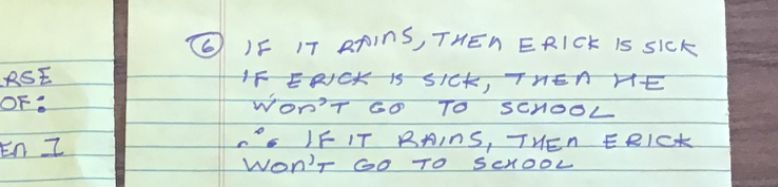 RSE
OF:
EN I
6 IF IT RAINS, THEN ERICK IS SICK
IF ERICK IS SICK, THEN HE
WON'T GO TO SCHOOL
∴ IF IT RAINS, THEN ERICK
WON'T GO TO SCHOOL